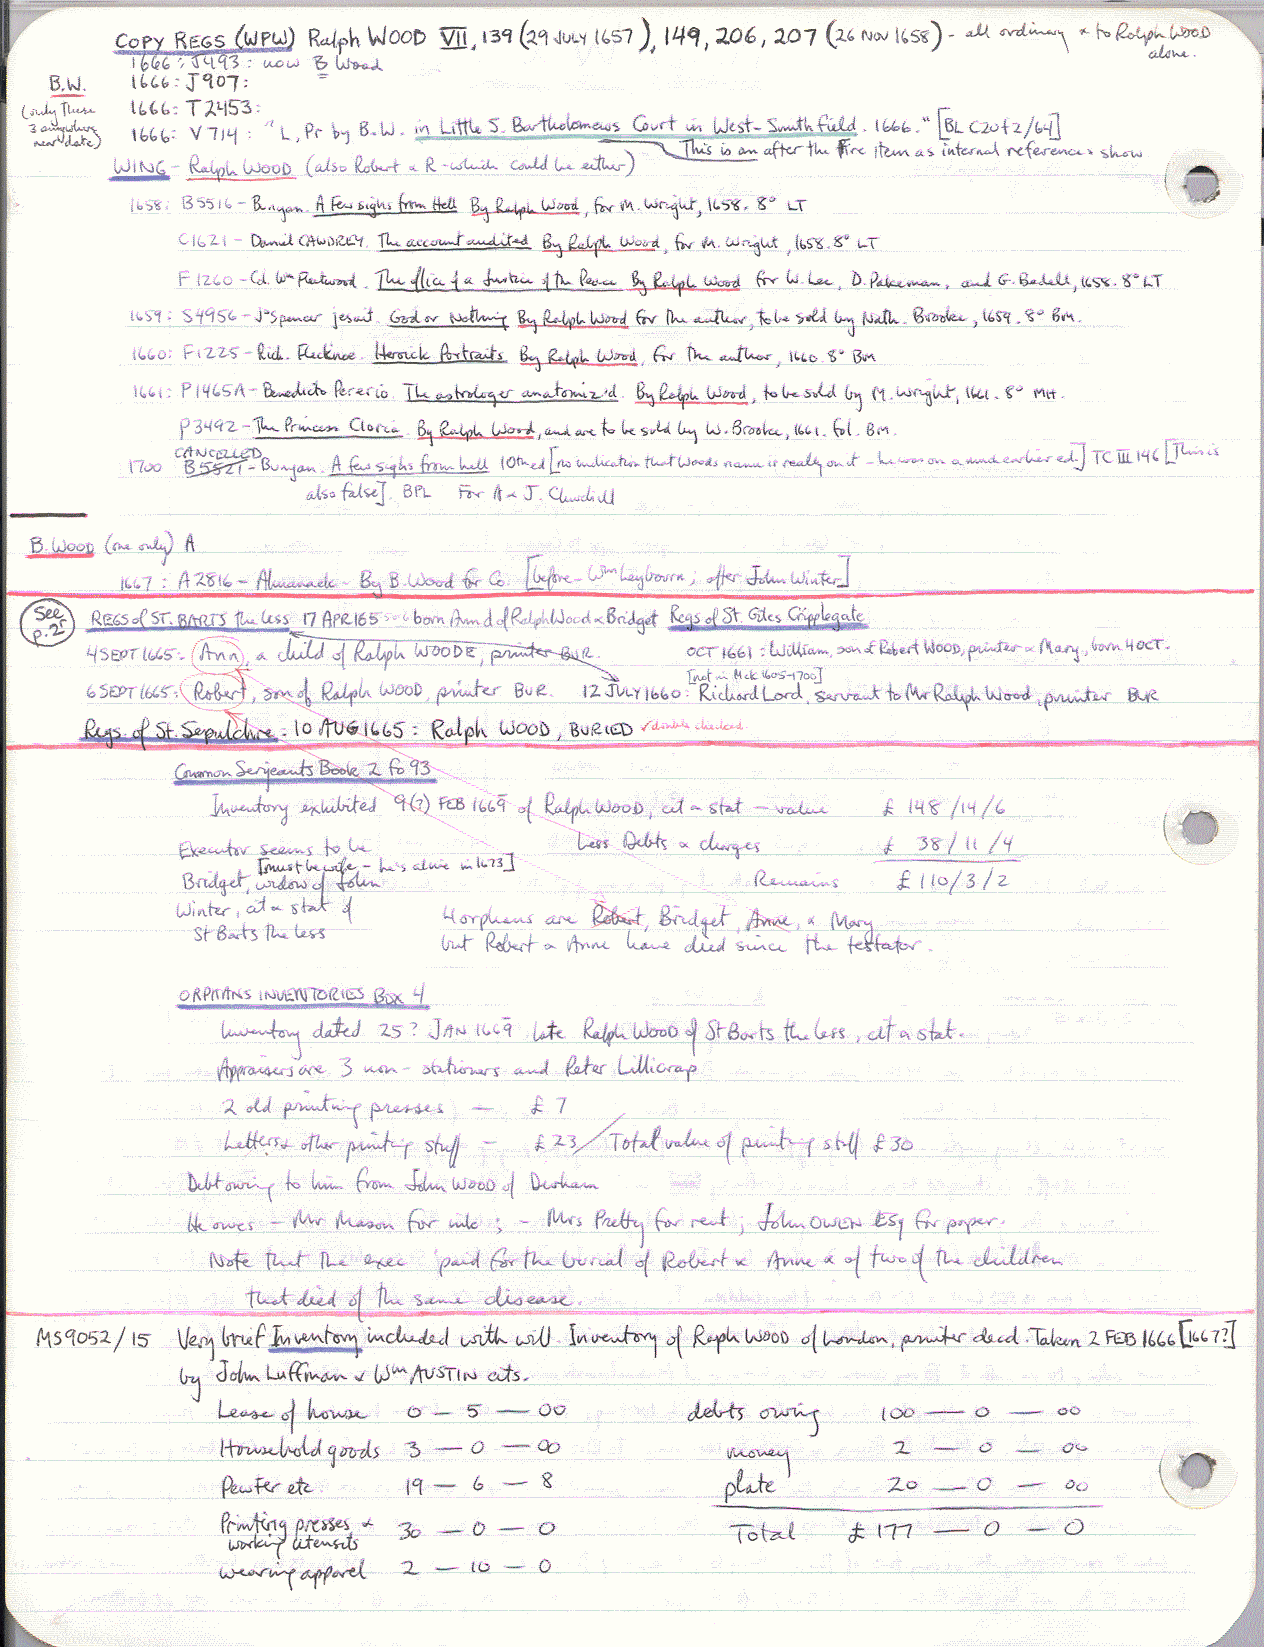 COPY REGS (WPW) Ralph WOOD VII, 139 (29 JULY 1657), 149, 206, 207 (26 NOV 1658) - all ordinary & to Ralph WOOD alone.
1666: J493: now B Wood
B.W. 1666: J907:
(only these 3 anywhere near date) 1666: T2453:
1666: V714: "L, Pr by B.W. in Little S. Bartholomews Court in West-Smithfield. 1666." [BL C20f2/64]
This is an after the Fire item as internal references show
WING - Ralph WOOD (also Robert & R - which could be either)
1658: B5516 - Bunyan. A Few sighs from Hell By Ralph Wood, for M. Wright, 1658. 8° LT
C1621 - Daniel CAWDREY. The account audited By Ralph Wood, for M. Wright, 1658. 8° LT
F1260 - Col. Wm Fleetwood. The office of a Justice of the Peace By Ralph Wood for W. Lee, D. Pakeman, and G. Bedell, 1658. 8° LT
1659: S4956 - Jn Spencer jesuit. God or Nothing By Ralph Wood for the author, to be sold by Nath. Brooke, 1659. 8° BM.
1660: F1225 - Rich. Flecknoe. Heroick Portraits By Ralph Wood, for the author, 1660. 8° BM
1661: P1465A - Benedicto Pererio. The astrologer anatomiz'd. By Ralph Wood, to be sold by M. Wright, 1661. 8° MH.
P3492 - The Princess Cloria. By Ralph Wood, and are to be sold by W. Brooke, 1661. fol. BM.
CANCELLED
1700 B5521 - Bunyan. A few sighs from hell 10th ed [no indication that Woods name is really on it - he was on a much earlier ed.] TC III 146 [This is
also false]. BPL For A & J. Churchill
B. WOOD (one only) A
1667: A2816 - Almanack - By B. Wood for Co. [before - Wm Leybourn; after John Winter]
See p.2r
REGS of ST. BARTS the less 17 APR 165 born Ann d of Ralph Wood & Bridget Regs of St. Giles Cripplegate
4 SEPT 1665: Ann, a child of Ralph WOODE, printer BUR. OCT 1661: William, son of Robert WOOD, printer & Mary, born 4 OCT.
[not in McK 1605-1700]
6 SEPT 1665: Robert, son of Ralph WOOD, printer BUR. 12 JULY 1660: Richard Lord, servant to Mr Ralph Wood, printer BUR
Regs. of St. Sepulchre: 10 AUG 1665: Ralph WOOD, BURIED ✓double checked
Common Serjeants Book 2 fo 93
Inventory exhibited 9(?) FEB 1669 of Ralph WOOD, cit & stat - value £ 148/14/6
Executor seems to be Less Debts & charges £ 38/11/4
[must be wife - he's alive in 1673]
Bridget, widow of John Remains £ 110/3/2
Winter, cit & stat of
St Barts the less
4 orphans are Robert, Bridget, Anne, & Mary
but Robert & Anne have died since the testator.
ORPHANS INVENTORIES BOX 4
Inventory dated 25? JAN 1669 late Ralph WOOD of St Barts the less, cit & stat.
Appraisers are 3 non-stationers and Peter Lillicrap
2 old printing presses - £ 7
Letters & other printing stuff - £23 / Total value of printing stuff £30
Debt owing to him from John WOOD of Durham
He owes - Mr Mason for ink; - Mrs Pretty for rent; John OWEN ESq for paper.
Note that the exec paid for the burial of Robert & Anne & of two of the children
that died of the same disease.
MS9052/15 Very brief Inventory included with will. Inventory of Raph WOOD of London, printer decd. Taken 2 FEB 1666 [1667?]
by John Luffman & Wm AUSTIN cits.
Lease of house 0 - 5 - 00 debts owing 100 - 0 - 00
Household goods 3 - 0 - 00 money 2 - 0 - 00
Pewter etc 19 - 6 - 8 plate 20 - 0 - 00
Printing presses & working utensils 30 - 0 - 0 Total £177 - 0 - 0
wearing apparel 2 - 10 - 0